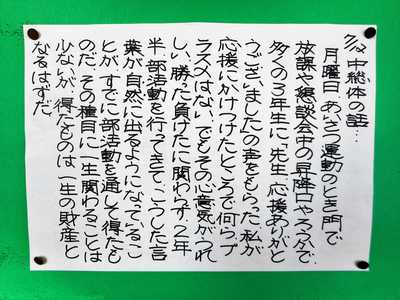 7/12 中総体の話…
月曜日、あいさつ運動のとき、門で、
放課や懇談会中の昇降口やろう下で、
多くの3年生に「先生、応援ありがと
うございました」の声をもらった。私が
応援にかけつけたところで何らプ
ラスメはない。でもその心意気がうれ
しい。勝った負けたに関わらず、2年
半、部活動を行ってきて、こうした言
葉が自然に出るようになっているこ
とが、すでに部活動を通して得たも
のだ。その種目に一生関わることは
少ないが、得たものは一生の財産と
なるはずだ。